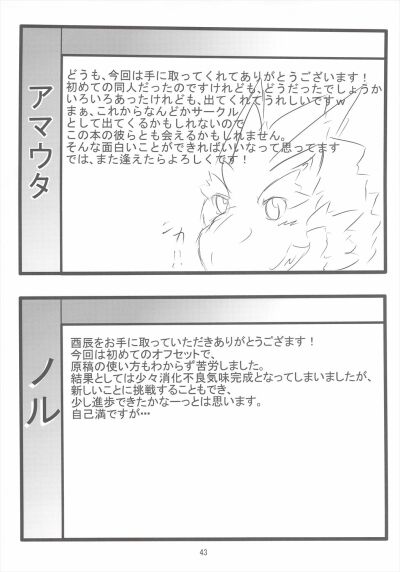 アマウタ
どうも、今回は手に取ってくれてありがとうございます！
初めての同人だったのですけれども、どうだったでしょうか
いろいろあったけれども、出てくれてうれしいですｗ
まぁ、これからなんどかサークル
として出てくるかもしれないので
この本の彼らとも会えるかもしれません。
そんな面白いことができればいいなって思ってます
では、また逢えたらよろしくです！
ノル
酉辰をお手に取っていただきありがとうござます！
今回は初めてのオフセットで、
原稿の使い方もわからず苦労しました。
結果としては少々消化不良気味完成となってしまいましたが、
新しいことに挑戦することもでき、
少し進歩できたかなーっとは思います。
自己満ですが…
43